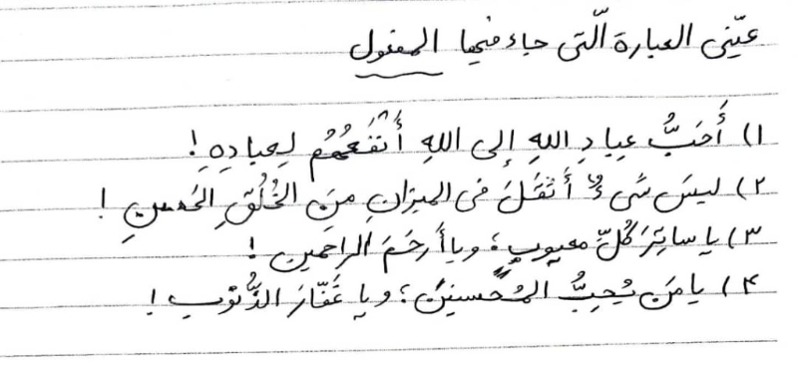 عيّني العبارة الّتي جاء فيها المفعول
١) أَحَبُّ عِبادِ اللهِ إلى اللهِ أَنْفَعُهُم لِعِبادِهِ!
٢) ليسَ شَيءٌ أَثقَلَ في الميزانِ مِنَ الخُلُقِ الحَسَنِ!
٣) يا ساتِرَ كُلِّ معيوبٍ؛ ويا أَرحَمَ الراحمين!
۴) يا مَن يُحِبُّ المُحسنينَ؛ ويا غَفّارَ الذُّنوبِ!